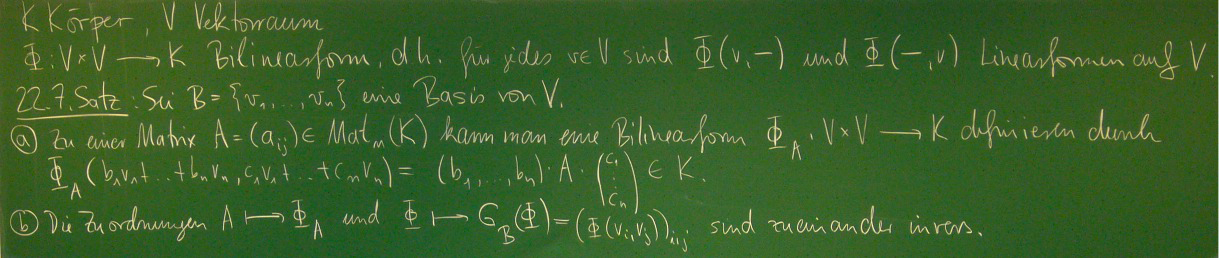 K Körper, V Vektorraum
Φ: V×V → K Bilinearform, d.h. für jedes v∈V sind Φ(v,-) und Φ(-,v) Linearformen auf V.
22.7. Satz: Sei B = {v₁,...,vₙ} eine Basis von V.
ⓐ Zu einer Matrix A = (aᵢⱼ) ∈ Matₙ(K) kann man eine Bilinearform Φ_A : V×V → K definieren durch
Φ_A (b₁v₁+...+bₙvₙ, c₁v₁+...+cₙvₙ) = (b₁,...,bₙ)·A·(c₁ ⋮ cₙ) ∈ K.
ⓑ Die Zuordnungen A ↦ Φ_A und Φ ↦ G_B(Φ) = (Φ(vᵢ,vⱼ))ᵢ,ⱼ sind zueinander invers.